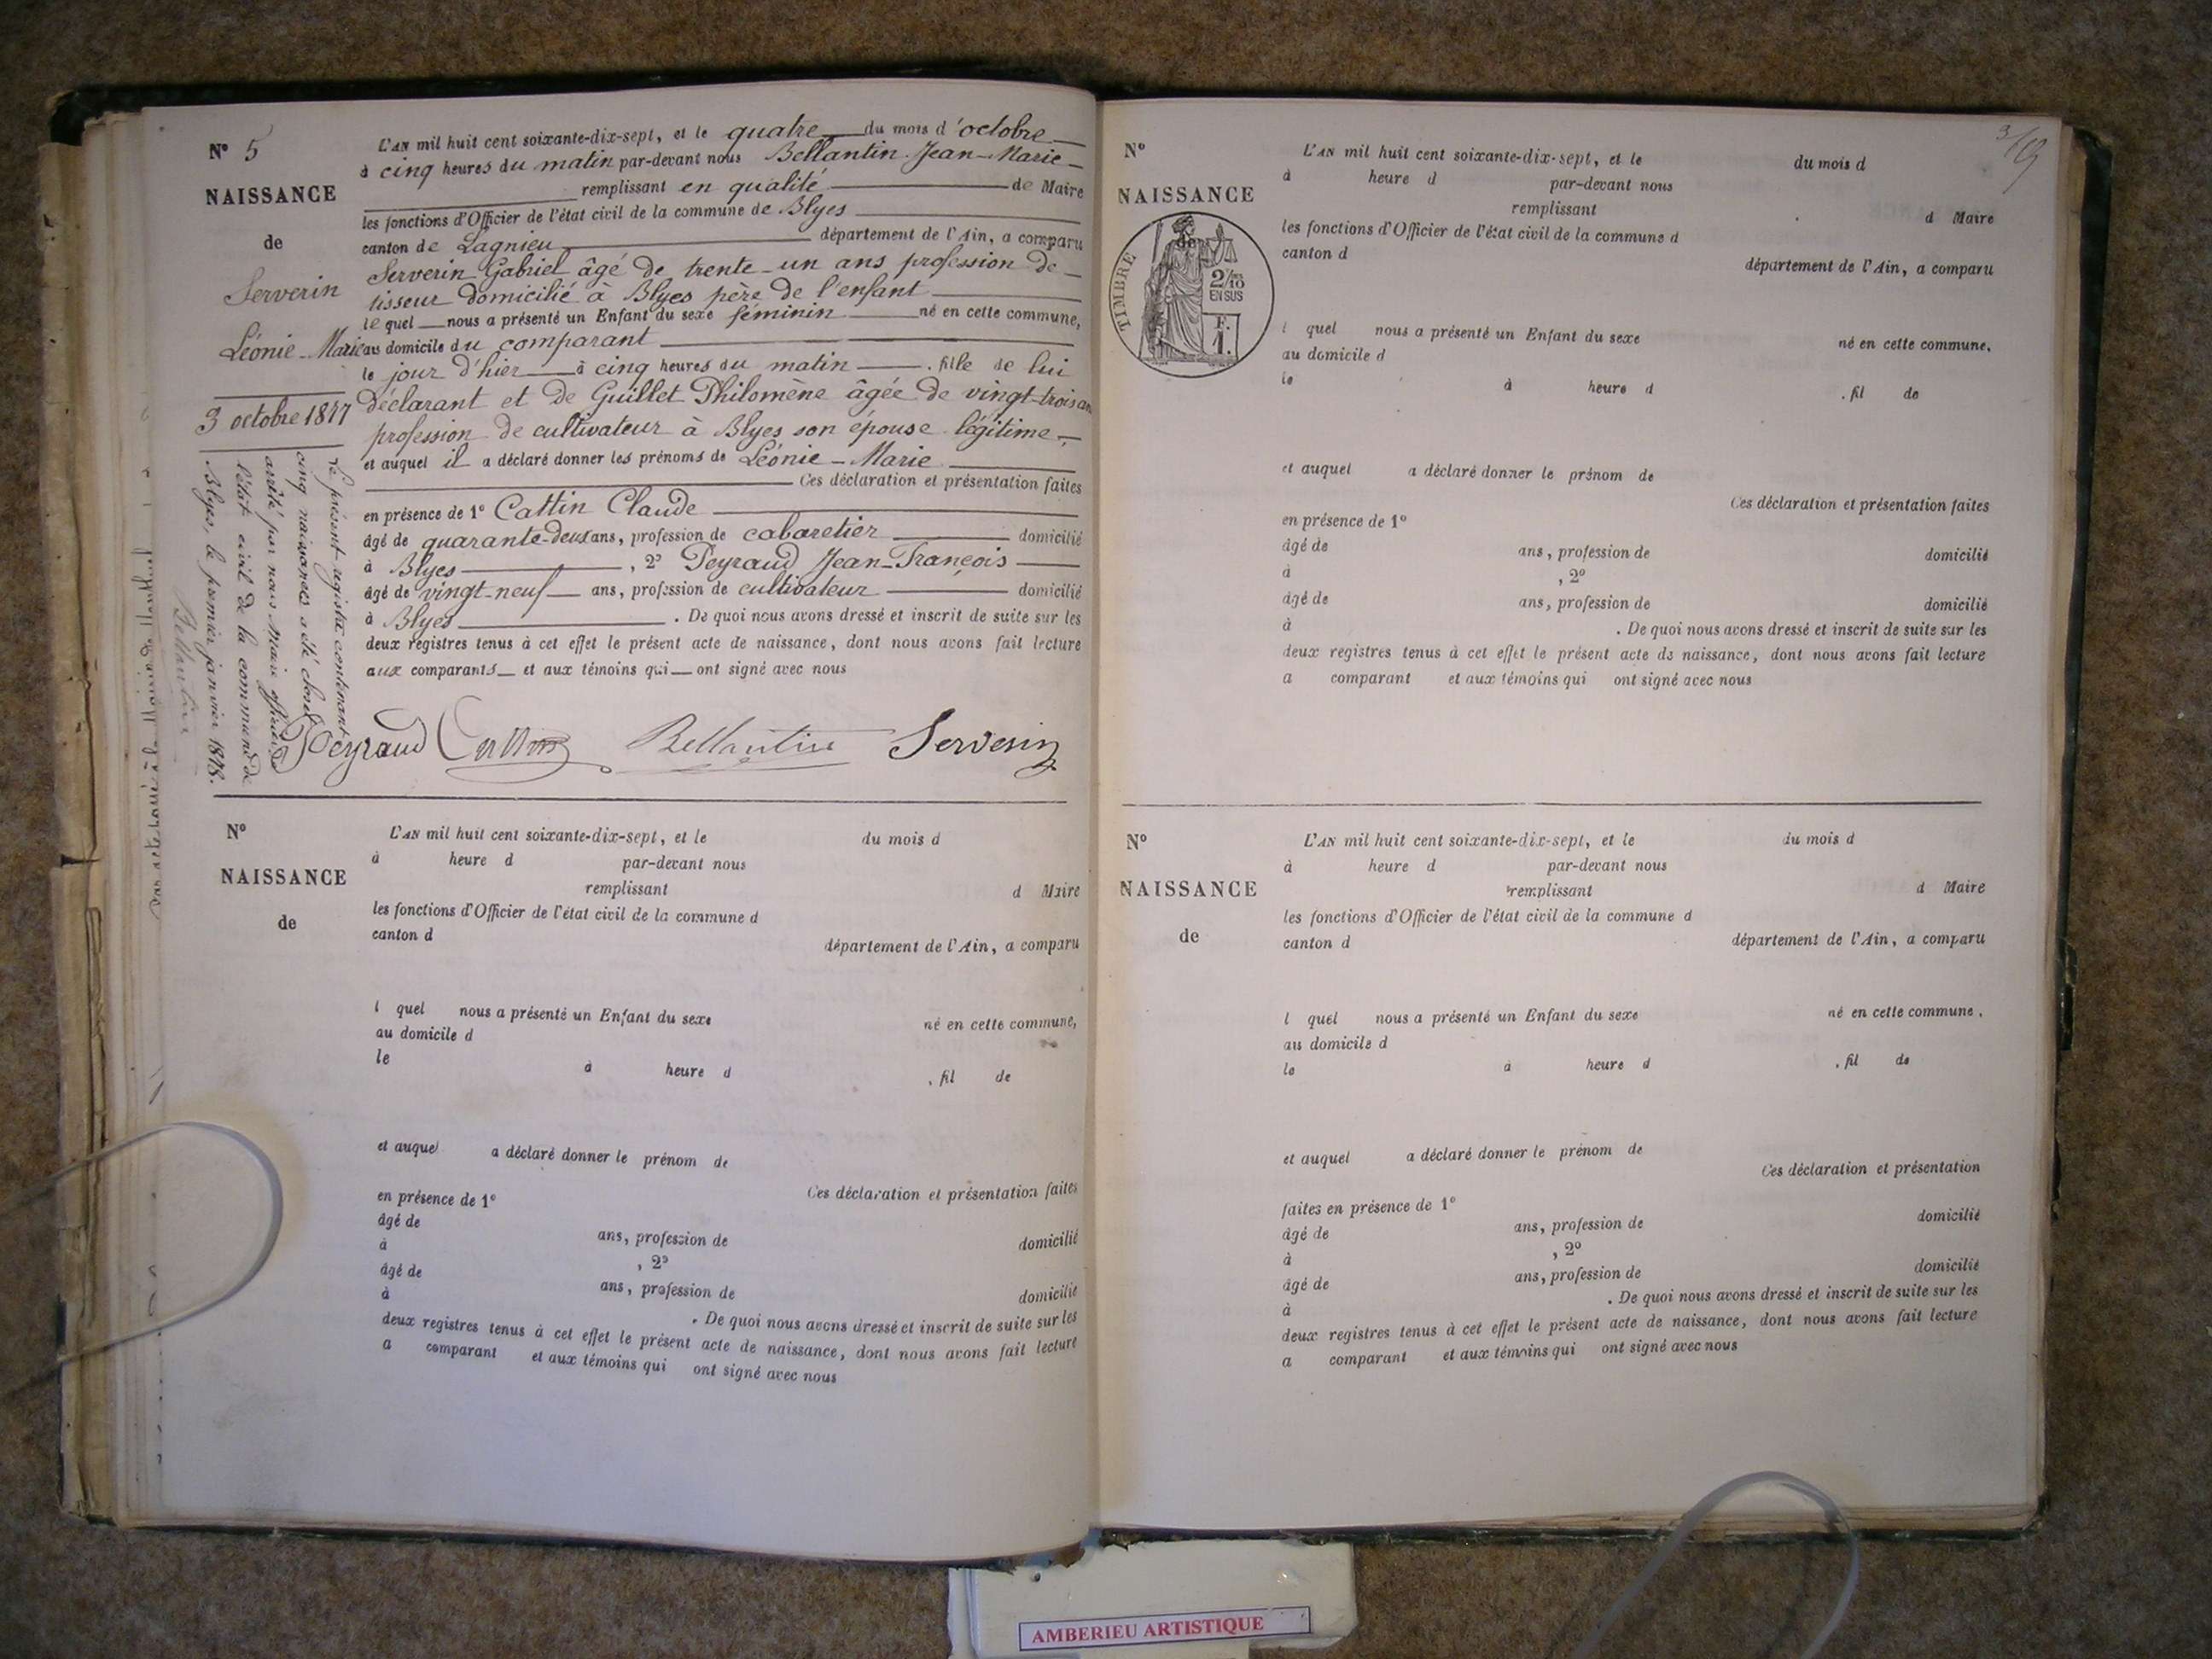 N° 5
NAISSANCE
de
Serverin
Léonie-Marie
3 octobre 1877
L'AN mil huit cent soixante-dix-sept, et le quatre du mois d'octobre
à cinq heures du matin par-devant nous Bellantin Jean-Marie
remplissant en qualité de Maire
les fonctions d'Officier de l'état civil de la commune de Blyes
canton de Lagnieu département de l'Ain, a comparu
Serverin Gabriel âgé de trente-un ans profession de
tisseur domicilié à Blyes père de l'enfant
le quel nous a présenté un Enfant du sexe féminin né en cette commune,
au domicile du comparant
le jour d'hier à cinq heures du matin . fille de lui
déclarant et de Guillet Philomène âgée de vingt-trois ans
profession de cultivateur à Blyes son épouse légitime,
et auquel il a déclaré donner les prénoms de Léonie-Marie
Ces déclaration et présentation faites
en présence de 1° Cattin Claude
âgé de quarante-deux ans, profession de cabaretier domicilié
à Blyes , 2° Peyraud Jean-François
âgé de vingt-neuf ans, profession de cultivateur domicilié
à Blyes . De quoi nous avons dressé et inscrit de suite sur les
deux registres tenus à cet effet le présent acte de naissance, dont nous avons fait lecture
aux comparants et aux témoins qui ont signé avec nous
Peyraud Cattin Bellantin Serverin
Le présent registre contenant
cinq naissances a été clos et
arrêté par nous Maire officier de
l'état civil de la commune de
Blyes, le premier janvier 1878.
Bellantin
N°
NAISSANCE
de
L'AN mil huit cent soixante-dix-sept, et le du mois d
à heure d par-devant nous
remplissant d Maire
les fonctions d'Officier de l'état civil de la commune d
canton d département de l'Ain, a comparu
l quel nous a présenté un Enfant du sexe né en cette commune,
au domicile d
le à heure d , fil de
et auquel a déclaré donner le prénom de
Ces déclaration et présentation faites
en présence de 1°
âgé de ans, profession de domicilié
à , 2°
âgé de ans, profession de domicilié
à . De quoi nous avons dressé et inscrit de suite sur les
deux registres tenus à cet effet le présent acte de naissance, dont nous avons fait lecture
a comparant et aux témoins qui ont signé avec nous
3/19
N°
NAISSANCE
de
TIMBRE
2/10
EN SUS
F.
1.
L'AN mil huit cent soixante-dix-sept, et le du mois d
à heure d par-devant nous
remplissant d Maire
les fonctions d'Officier de l'état civil de la commune d
canton d département de l'Ain, a comparu
l quel nous a présenté un Enfant du sexe né en cette commune.
au domicile d
le à heure d . fil de
et auquel a déclaré donner le prénom de
Ces déclaration et présentation faites
en présence de 1°
âgé de ans, profession de domicilié
à , 2°
âgé de ans, profession de domicilié
à . De quoi nous avons dressé et inscrit de suite sur les
deux registres tenus à cet effet le présent acte de naissance, dont nous avons fait lecture
a comparant et aux témoins qui ont signé avec nous
N°
NAISSANCE
de
L'AN mil huit cent soixante-dix-sept, et le du mois d
à heure d par-devant nous
remplissant d Maire
les fonctions d'Officier de l'état civil de la commune d
canton d département de l'Ain, a comparu
l quel nous a présenté un Enfant du sexe né en cette commune,
au domicile d
le à heure d , fil de
et auquel a déclaré donner le prénom de
Ces déclaration et présentation
faites en présence de 1°
âgé de ans, profession de domicilié
à , 2°
âgé de ans, profession de domicilié
à . De quoi nous avons dressé et inscrit de suite sur les
deux registres tenus à cet effet le présent acte de naissance, dont nous avons fait lecture
a comparant et aux témoins qui ont signé avec nous
AMBERIEU ARTISTIQUE